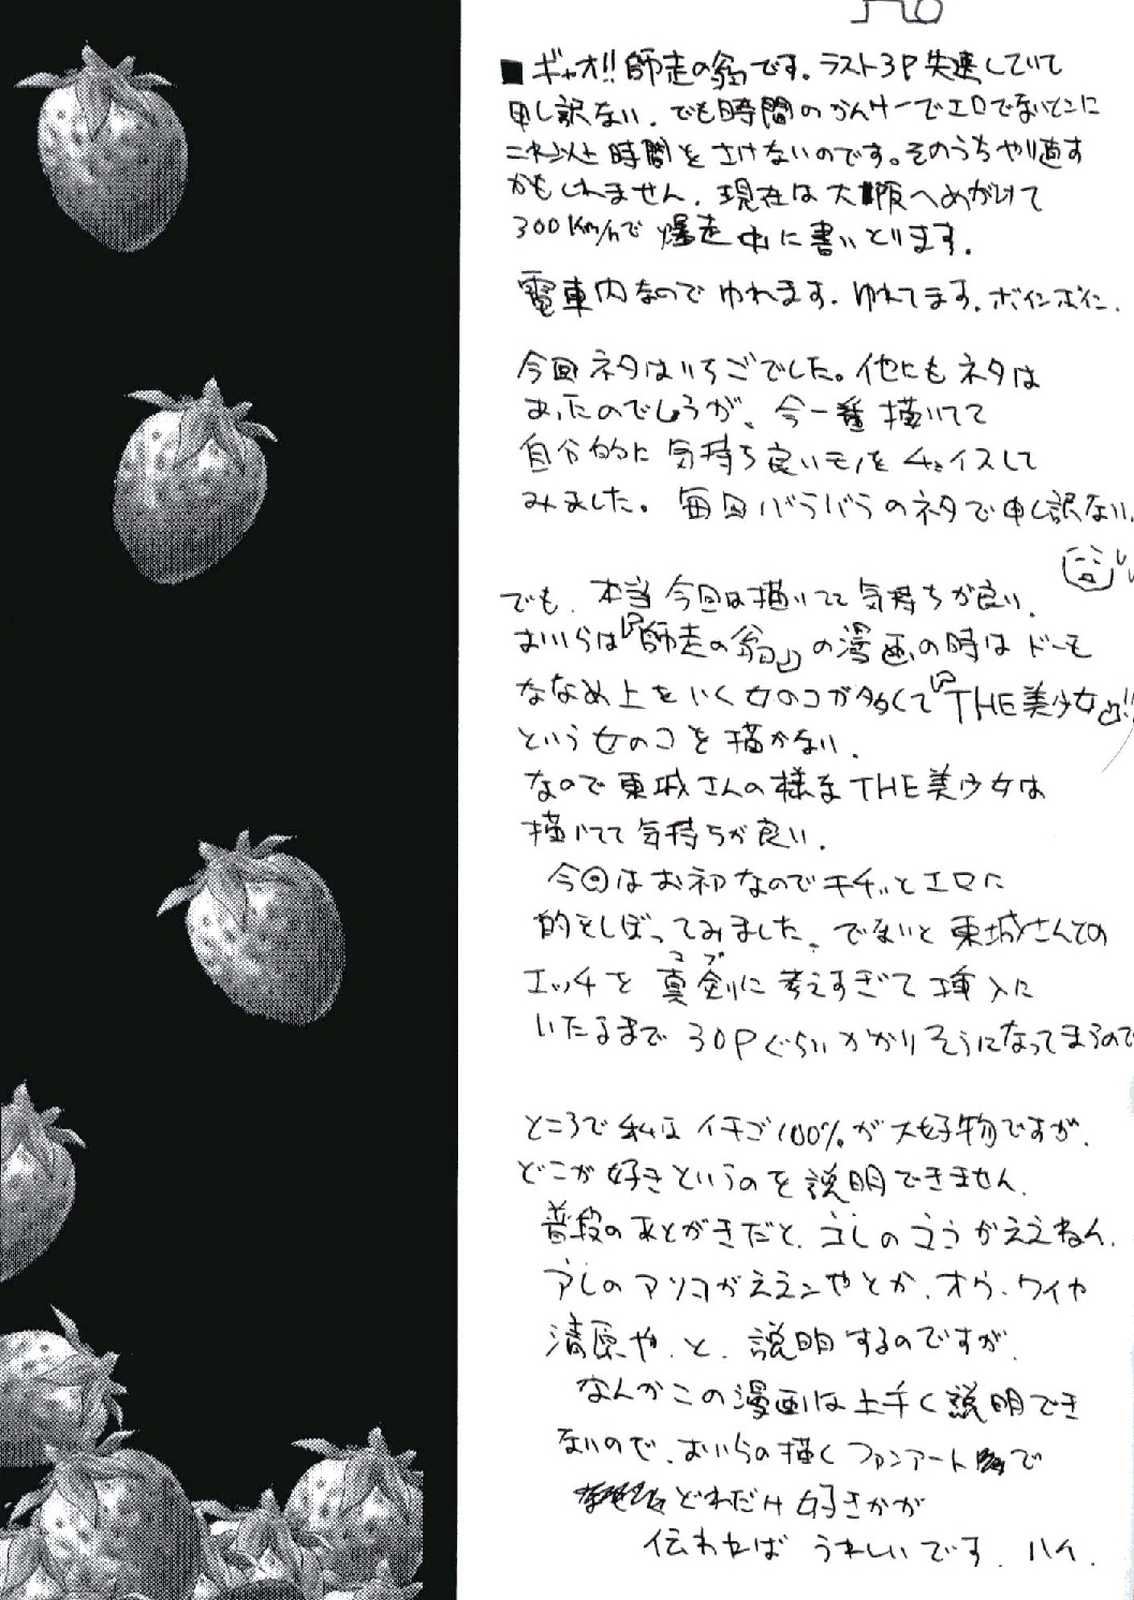 ■ギャオ!!師走の翁です。ラスト3P失速していて
申し訳ない。でも時間のかんけーでエロでないとこに
これ以上時間をさけないのです。そのうちやり直す
かもしれません。現在は大阪へめがけて
300Km/hで爆走中に書いとります。
電車内なのでゆれます。ゆれてます。ボインボイン。
今回ネタはいちごでした。他にもネタは
あったのでしょうが、今一番描いてて
自分的に気持ち良いモノをチョイスして
みました。毎回バラバラのネタで申し訳ない。
でも、本当今回は描いてて気持ちが良い。
おいらは『師走の翁』の漫画の時はドーモ
ななめ上をいく女のコが多くて『THE美少女』!!
という女のコを描かない。
なので東城さんの様なTHE美少女は
描いてて気持ちが良い。
今回はお初なのでキチッとエロに
的をしぼってみました。でないと東城さんでの
エッチを真剣に考えすぎて挿入に
いたるまで30Pぐらいかかりそうになってまうので
ところで私はイチゴ100%が大好物ですが、
どこが好きというのを説明できません。
普段のあとがきだと、コレのココがええねん。
アレのアソコがええンやとか、オウ、ワイや
清原や、と、説明するのですが、
なんかこの漫画は上手く説明でき
ないので、おいらの描くファンアートで
どれだけ好きかが
伝わればうれしいです。ハイ。